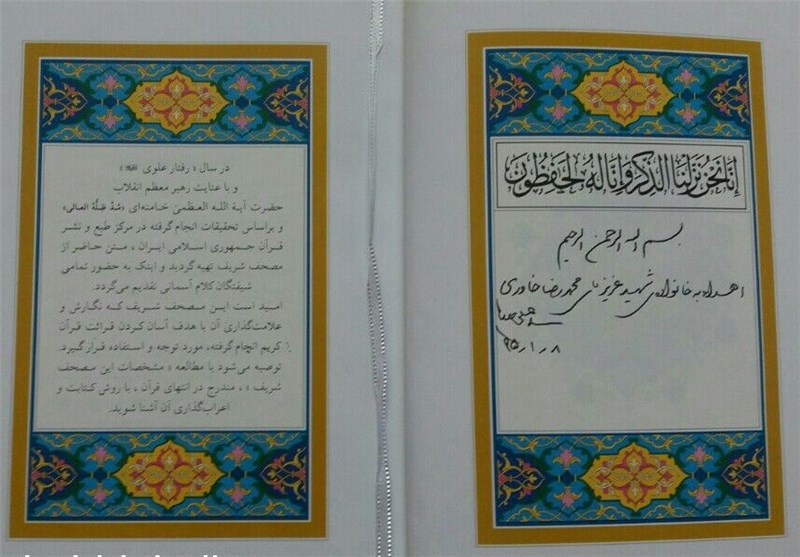 إِنَّا نَحْنُ نَزَّلْنَا الذِّكْرَ وَإِنَّا لَهُ لَحَافِظُونَ
بسم الله الرحمن الرحیم
اهداء به خانواده‌ی شهید عزیز آقای محمدرضا خاوری
۹۵/۱/۸
در سال « رفتار علوی »
و با عنایت رهبر معظم انقلاب
حضرت آیة الله العظمیٰ خامنه‌ای «مُدَّ ظِلُّهُ العالی»
و براساس تحقیقات انجام گرفته در مرکز طبع و نشر
قرآن جمهوری اسلامی ایران، متن حاضر از
مصحف شریف تهیه گردید و اینک به حضور تمامی
شیفتگان کلام آسمانی تقدیم می‌گردد.
امید است این مصحف شریف که نگارش و
علامت‌گذاری آن با هدف آسان کردن قرائت قرآن
کریم انجام گرفته، مورد توجه و استفاده قرار گیرد.
توصیه می‌شود با مطالعه « مشخصات این مصحف
شریف » ، مندرج در انتهای قرآن ، با روش کتابت و
اعراب‌گذاری آن آشنا شوید.